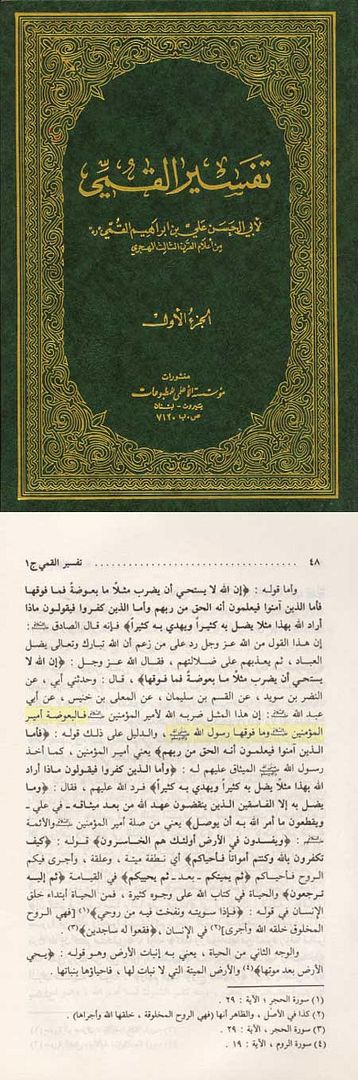 تفسير القمي
لأبي الحسن علي بن ابراهيم القمي «ره»
من أعلام القرن الثالث الهجري
الجزء الأول
منشورات
مؤسسة الأعلمي للمطبوعات
بيروت - لبنان
ص.ب ٧١٢٠
٤٨ ........................ تفسير القمي ج١
وأما قوله : ﴿إن الله لا يستحي أن يضرب مثلاً ما بعوضة فما فوقها
فأما الذين آمنوا فيعلمون أنه الحق من ربهم وأما الذين كفروا فيقولون ماذا
أراد الله بهذا مثلاً يضل به كثيراً ويهدي به كثيراً﴾ فإنه قال الصادق :
إن هذا القول من الله عز وجل رد على من زعم أن الله تبارك وتعالى يضل
العباد ، ثم يعذبهم على ضلالتهم ، فقال الله عز وجل : ﴿إن الله لا
يستحي أن يضرب مثلاً ما بعوضة فما فوقها﴾ ، قال : وحدثني أبي ، عن
النضر بن سويد ، عن القسم بن سليمان ، عن المعلى بن خنيس ، عن أبي
عبد الله : إن هذا المثل ضربه الله لأمير المؤمنين فالبعوضة أمير
المؤمنين وما فوقها رسول الله ، والدليل على ذلك قوله : ﴿فأما
الذين آمنوا فيعلمون أنه الحق من ربهم﴾ يعني أمير المؤمنين ، كما أخذ
رسول الله الميثاق عليهم له : ﴿وأما الذين كفروا فيقولون ماذا أراد
الله بهذا مثلاً يضل به كثيراً ويهدي به كثيراً﴾ فرد الله عليهم ، فقال : ﴿وما
يضل به إلا الفاسقين الذين ينقضون عهد الله من بعد ميثاقه - في علي -
ويقطعون ما أمر الله به أن يوصل﴾ يعني من صلة أمير المؤمنين والأئمة
: ﴿ويفسدون في الأرض أولئك هم الخاسرون﴾ قوله : ﴿كيف
تكفرون بالله وكنتم أمواتاً فأحياكم﴾ أي نطفة ميتة ، وعلقة ، وأجرى فيكم
الروح فأحياكم ﴿ثم يميتكم - بعد - ثم يحييكم﴾ في القيامة ﴿ثم إليه
ترجعون﴾ والحياة في كتاب الله على وجوه كثيرة ، فمن الحياة ابتداء خلق
الإنسان في قوله : ﴿فإذا سويته ونفخت فيه من روحي﴾(١) [فهي الروح
المخلوق خلقه الله وأجرى](٢) في الإنسان ، ﴿فقعوا له ساجدين﴾(٣) .
والوجه الثاني من الحياة ، يعني به إنبات الأرض وهو قوله : ﴿يحيي
الأرض بعد موتها﴾(٤) والأرض الميتة التي لا نبات لها ، فإحياؤها بنباتها .
(١) سورة الحجر ؛ الآية : ٢٩ .
(٢) كذا في الأصل ، والظاهر أنها (فهي الروح المخلوقة ، خلقها الله وأجراها) .
(٣) سورة الحجر ، الآية : ٢٩ .
(٤) سورة الروم ، الآية : ١٩ .